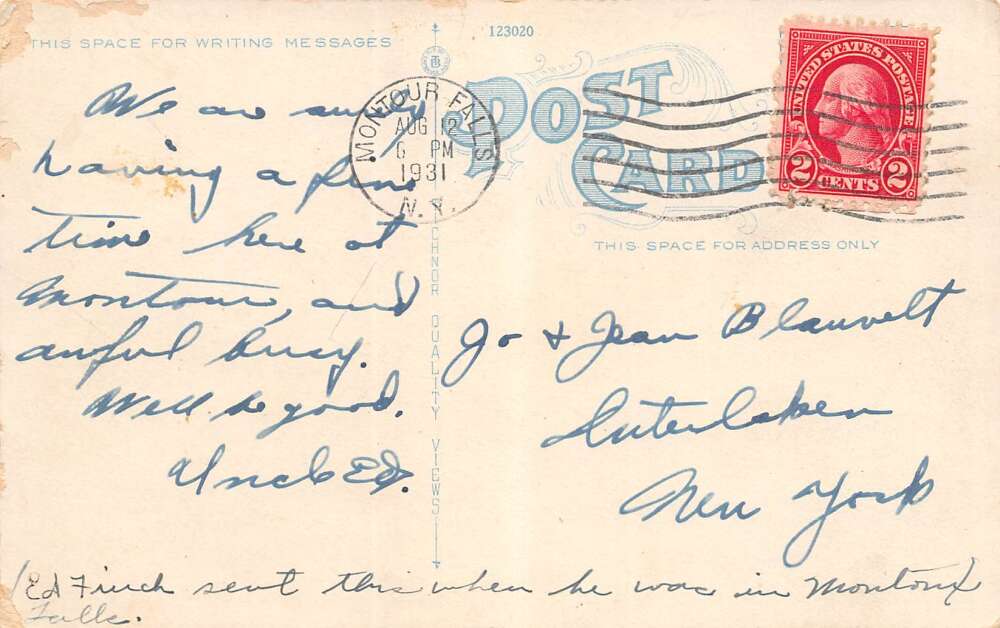 THIS SPACE FOR WRITING MESSAGES
123020
POST CARD
THIS SPACE FOR ADDRESS ONLY
MONTOUR FALLS
AUG 12
6 PM
1931
N.Y.
UNITED STATES POSTAGE
2 CENTS 2
We are surely
having a fine
time here at
Montour, and
awful busy.
Well be good.
Uncle Ed.
CHNOR QUALITY VIEWS
Jo & Jean Blauvelt
Interlaken
New York
(Ed Finch sent this when he was in Montour
Falls.